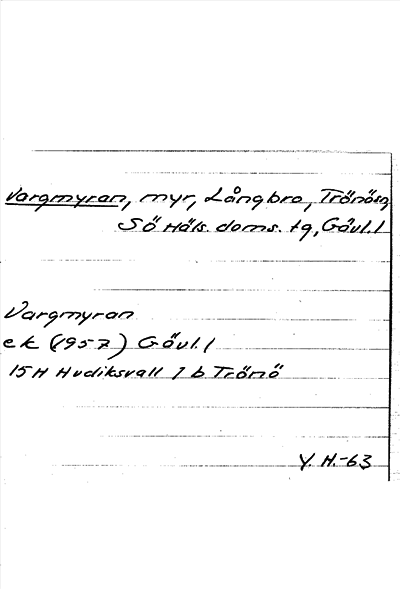 Vargmyran, myr, Långbro, Trönösn
Sö Häls. doms. tg, Gävl. l
Vargmyran
ek (1957) Gävl. l
15 H Hudiksvall 1 b Trönö
Y. H.-63